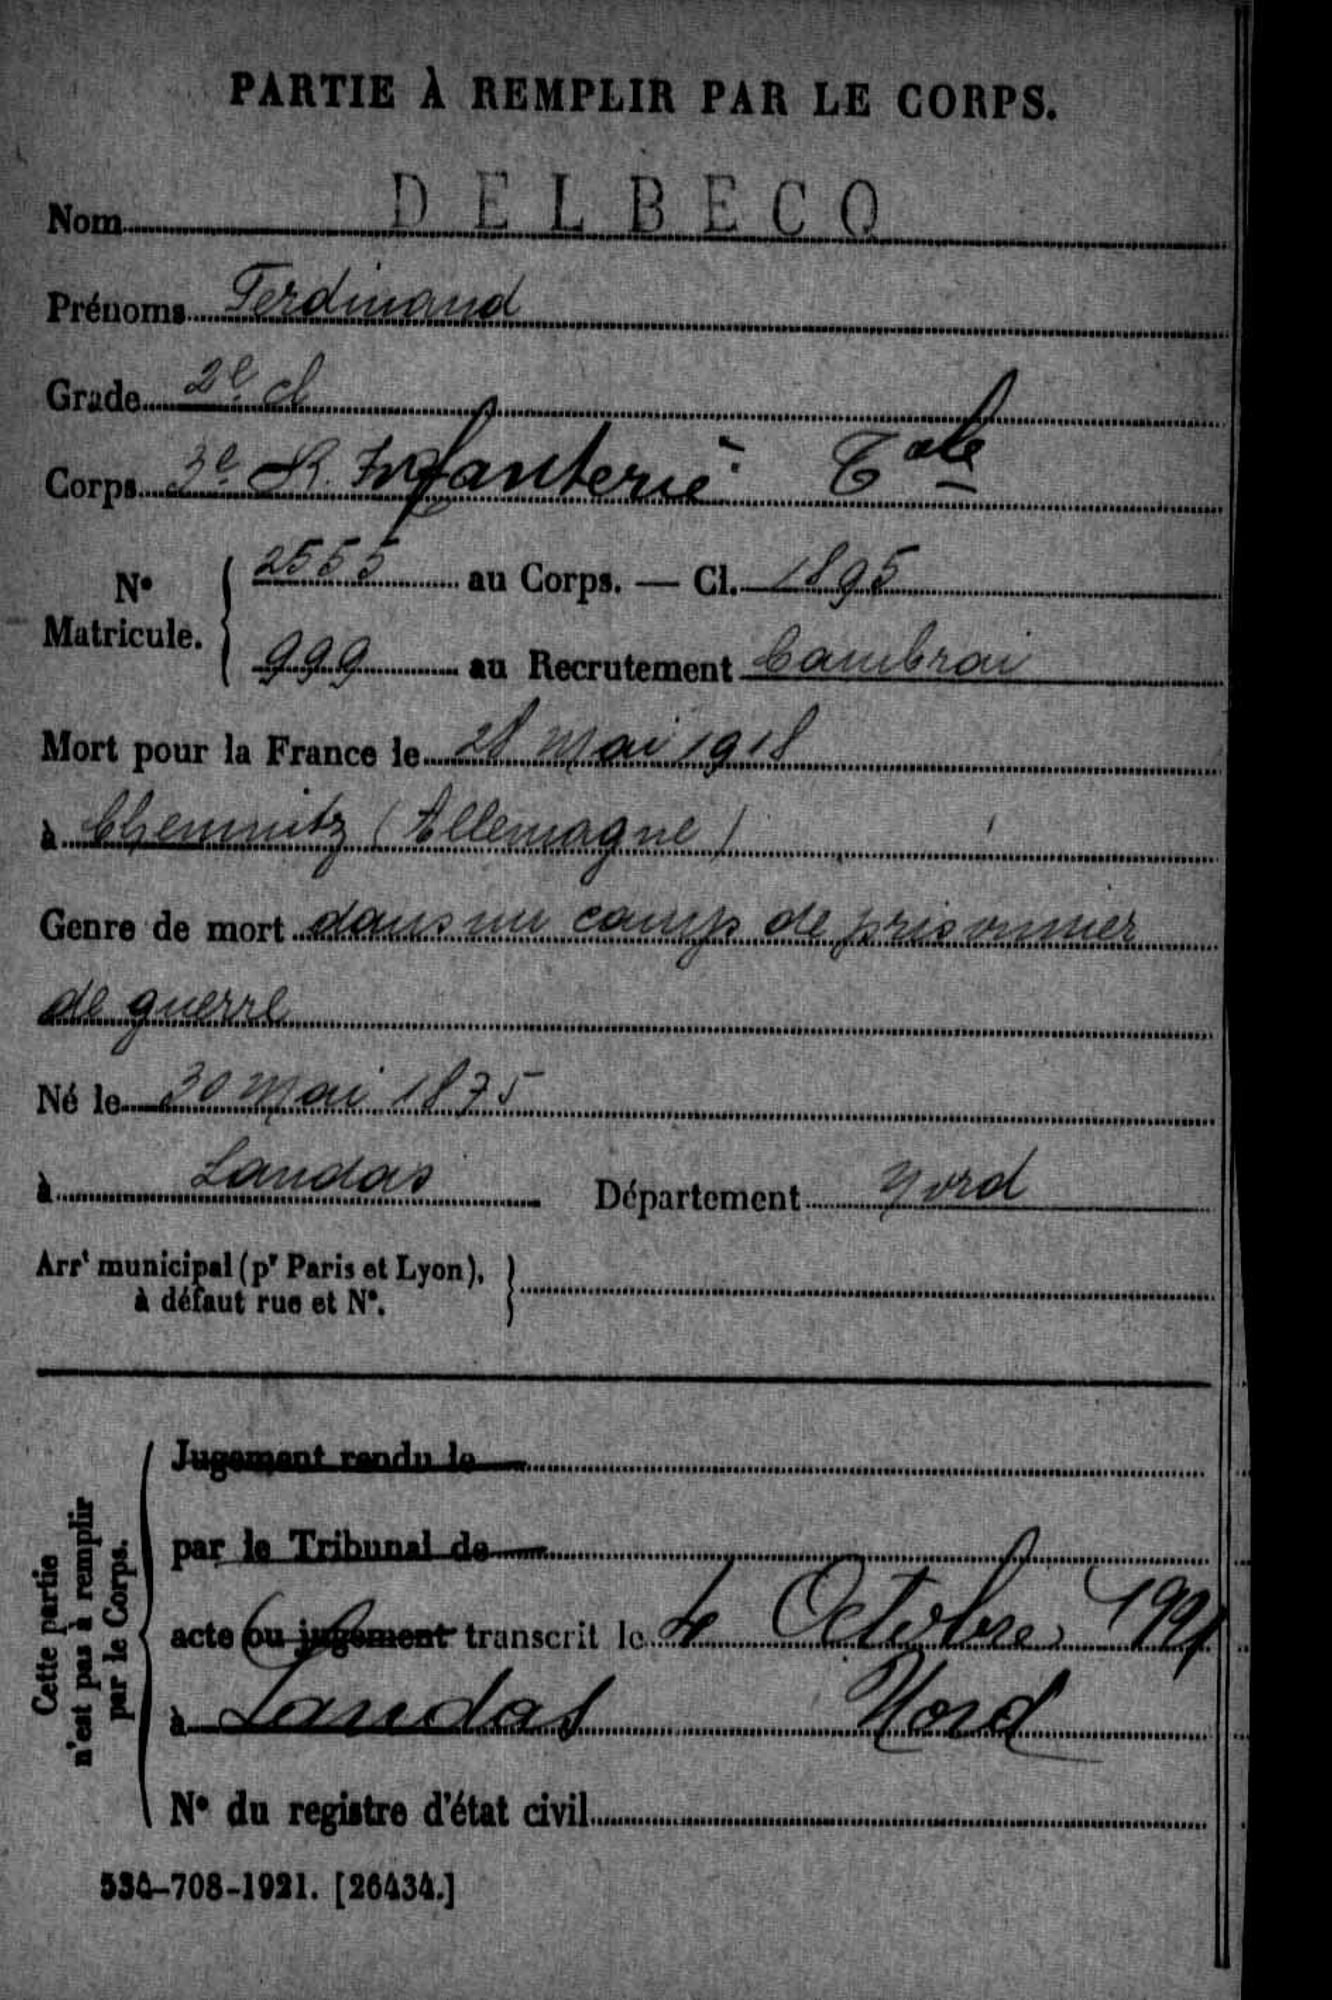 PARTIE À REMPLIR PAR LE CORPS.
Nom DELBECQ
Prénoms Ferdinand
Grade 2e cl
Corps 3e R. Infanterie Tale
No Matricule. { 2555 au Corps. — Cl. 1895
999 au Recrutement Cambrai
Mort pour la France le 28 Mai 1918
à Chemnitz (Allemagne)
Genre de mort dans un camp de prisonnier
de guerre
Né le 30 Mai 1875
à Landas Département Nord
Arrt municipal (pr Paris et Lyon),
à défaut rue et No.
Cette partie n'est pas à remplir par le Corps.
Jugement rendu le
par le Tribunal de
acte (ou jugement transcrit le 4 Octobre
à Landas Nord
No du registre d'état civil
534-708-1921. [26434.]